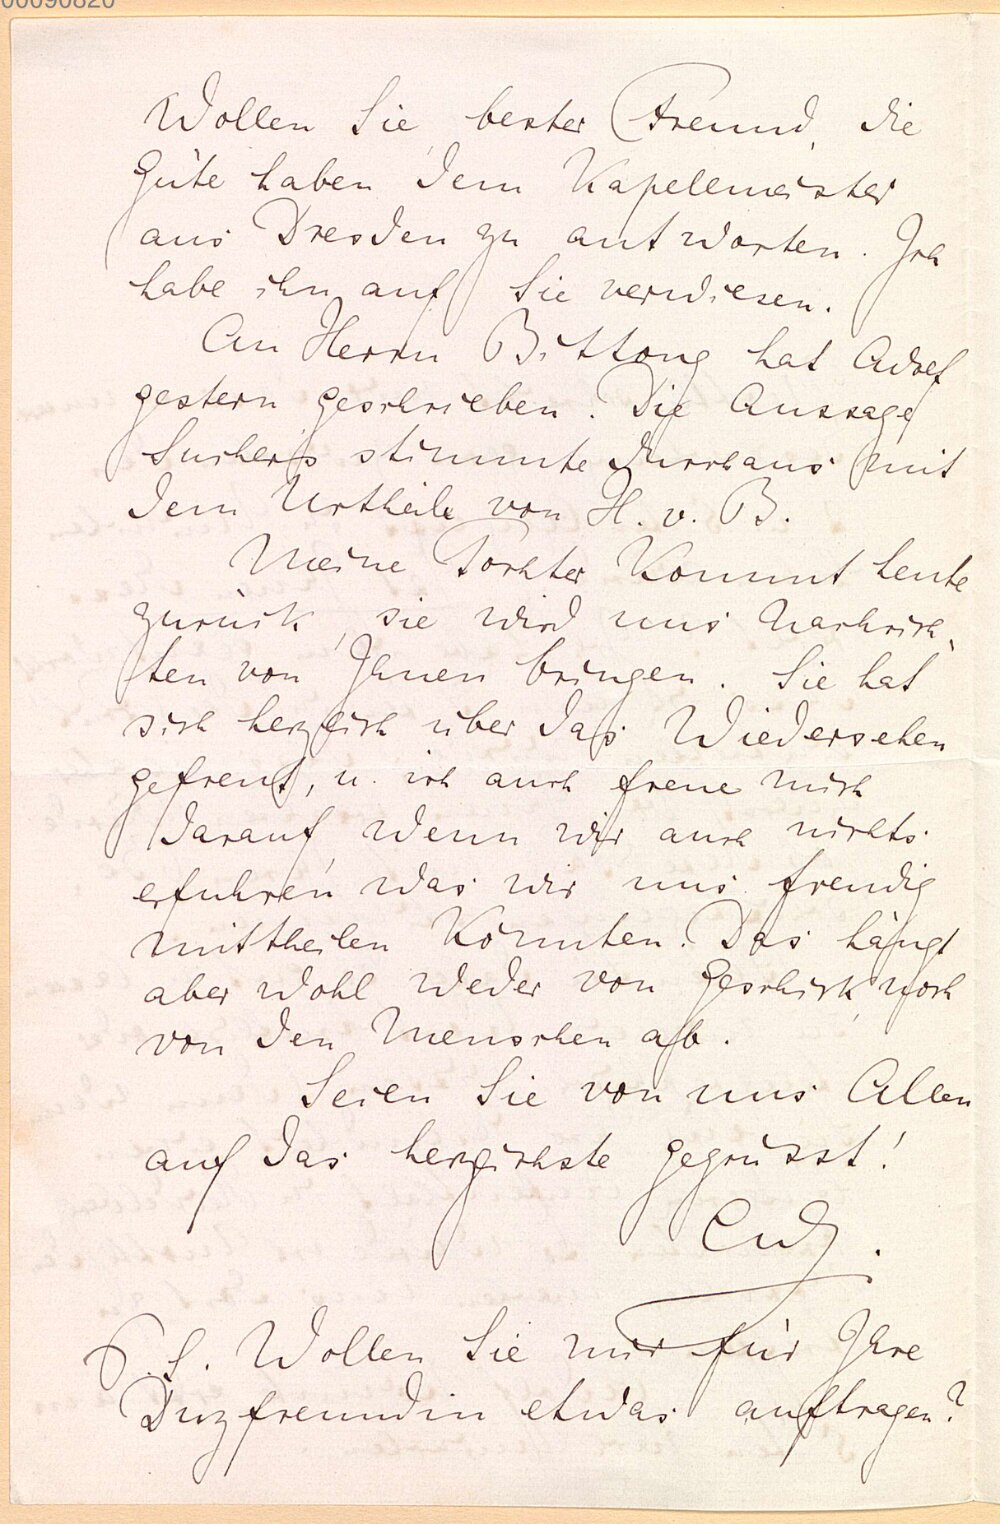 00090820
Wollen Sie, bester Freund, die
Güte haben dem Kapellmeister
aus Dresden zu antworten. Ich
habe ihn auf Sie verwiesen.
An Herrn Bittong hat Adolf
gestern geschrieben. Die Aussage
Sucher's stimmte durchaus mit
dem Urtheile von H. v. B.
Meine Tochter kommt heute
zurück, sie wird uns Nachrich-
ten von Ihnen bringen. Sie hat
sich herzlich über das Wiedersehen
gefreut, u. ich auch freue mich
darauf, wenn wir auch nichts
erfuhren was wir uns freudig
mittheilen könnten. Das hängt
aber wohl weder von Geschick noch
von den Menschen ab.
Seien Sie von uns Allen
auf das herzlichste gegrüsst!
P.S. Wollen Sie mir für Ihre
Duzfreundin etwas auftragen?